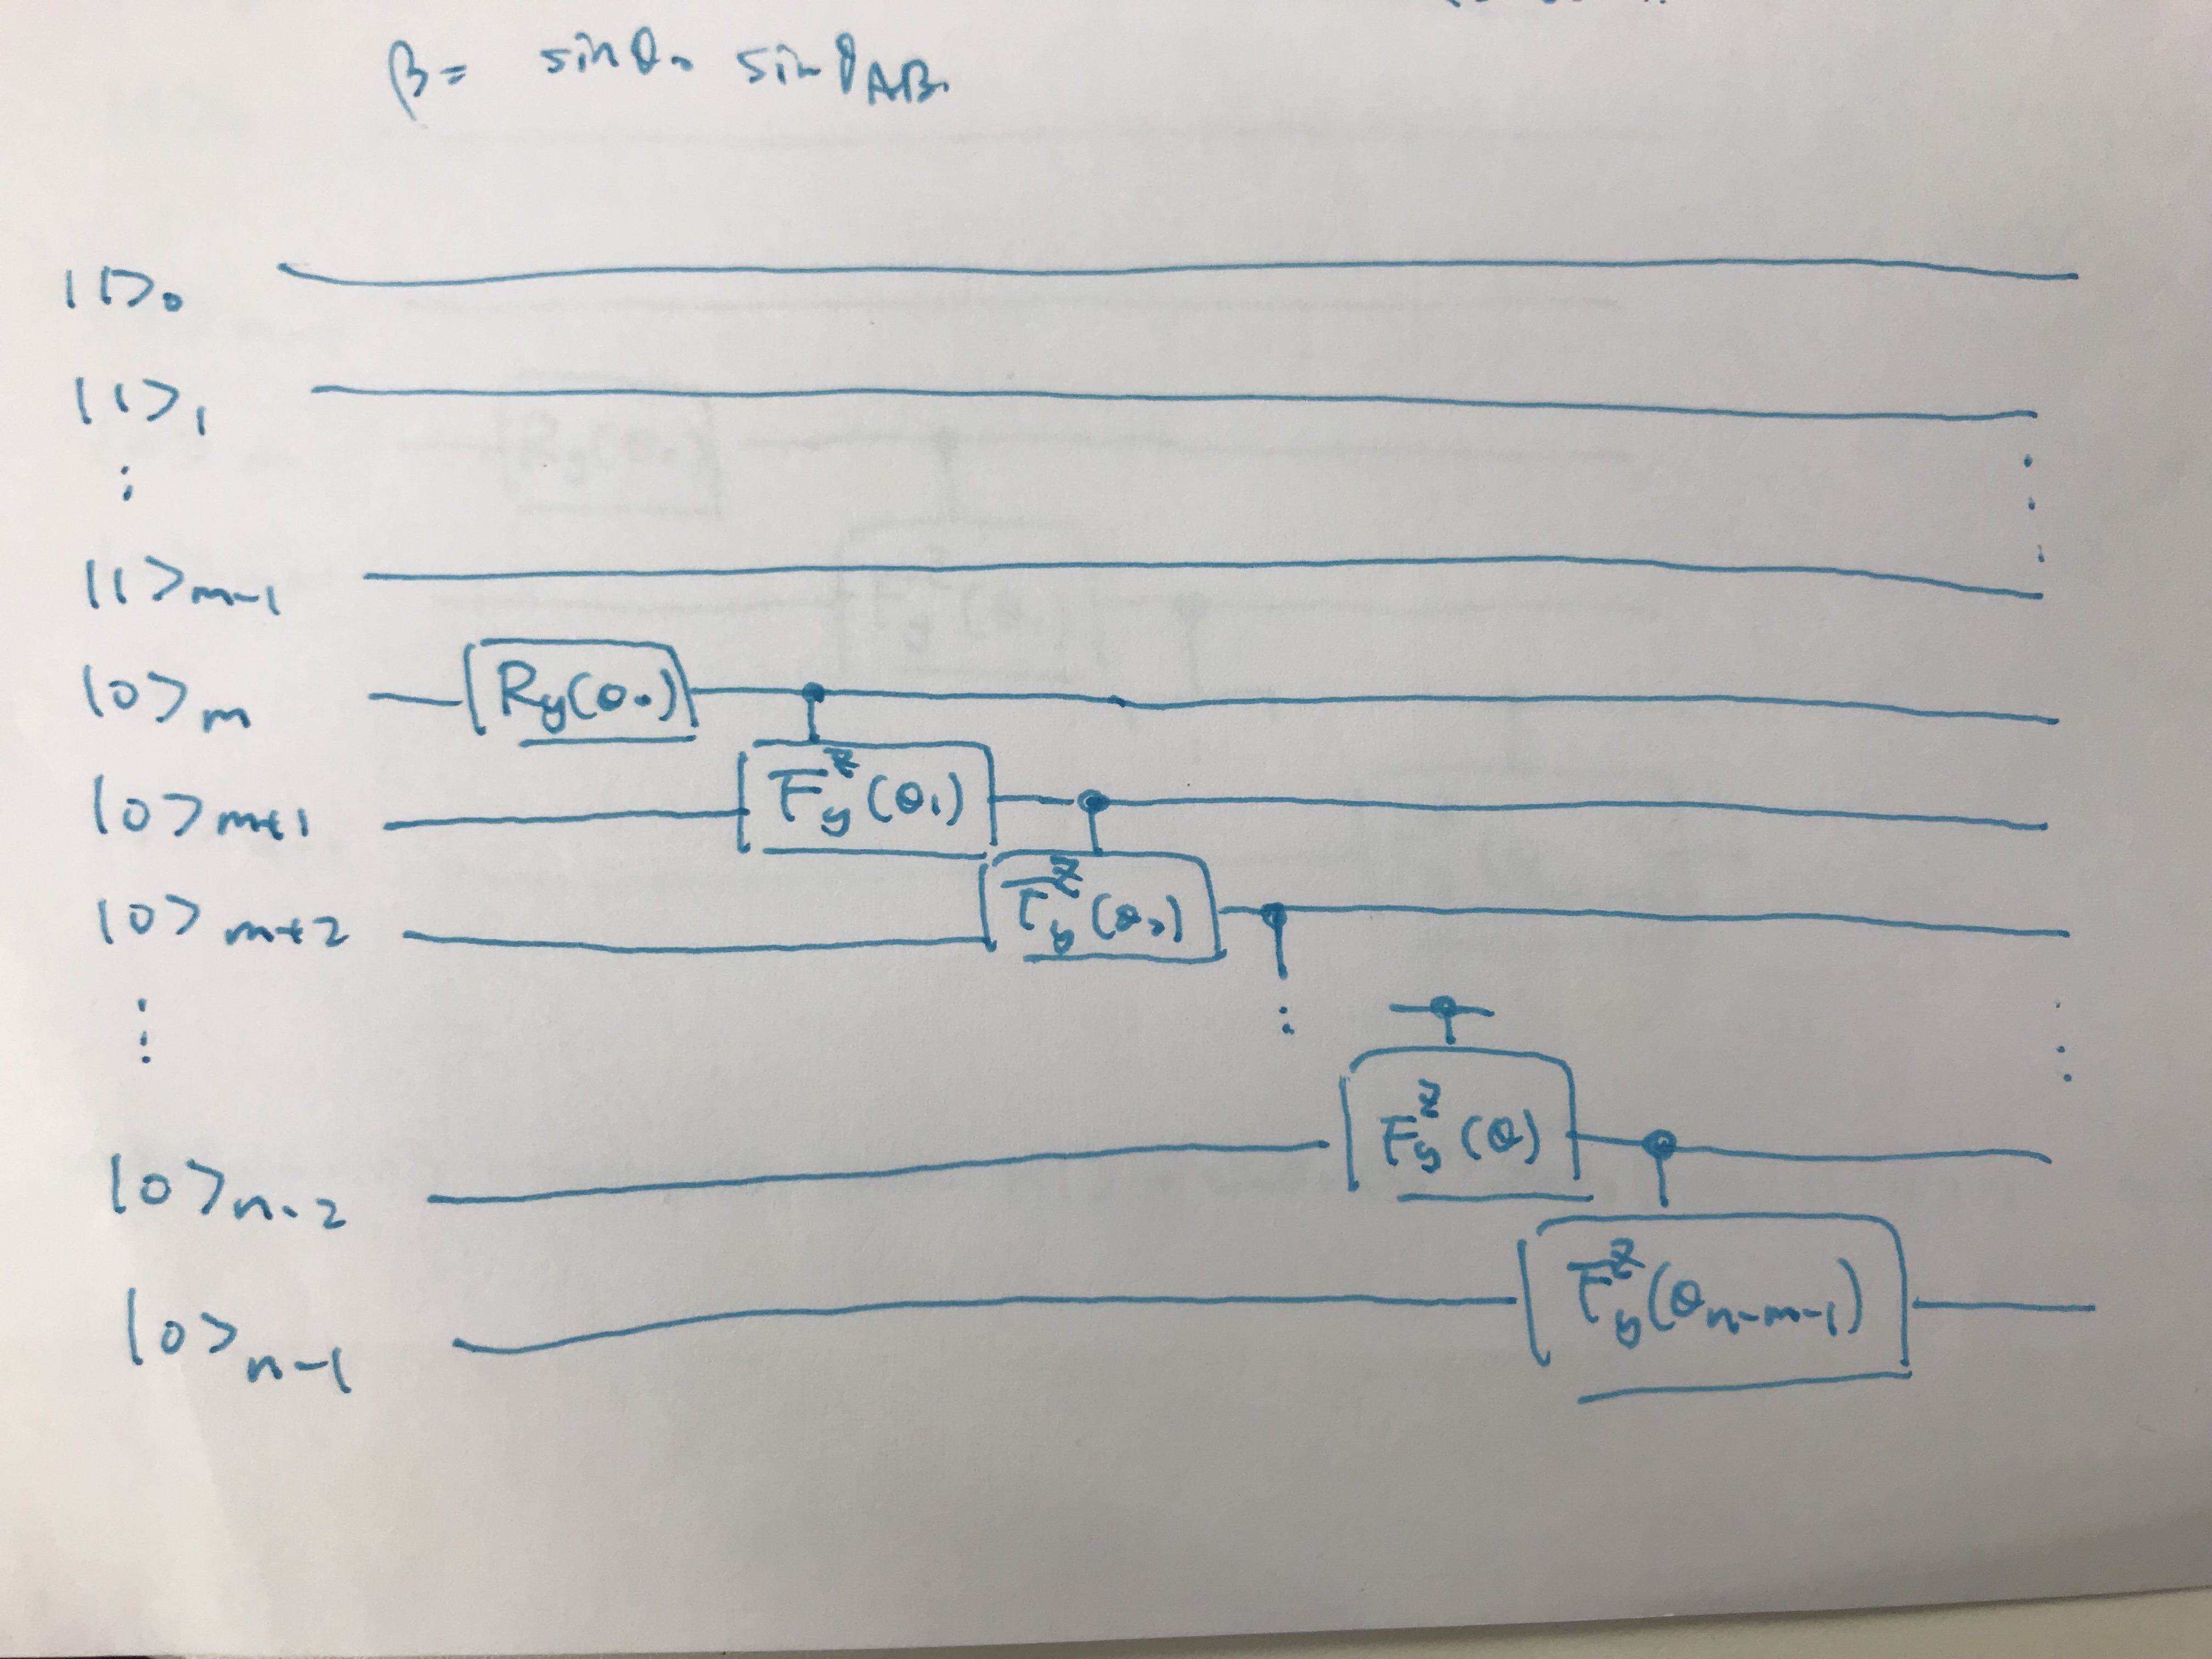 β = sinθ₀ sinθ_AB.
|1⟩₀
|1⟩₁
⋮
|1⟩m-1
|0⟩m Ry(θ₀)
|0⟩m+1 F_y^z(θ₁)
|0⟩m+2 F_y^z(θ₂)
⋮
|0⟩n-2 F_y^z(θ)
|0⟩n-1 F_y^z(θn-m-1)